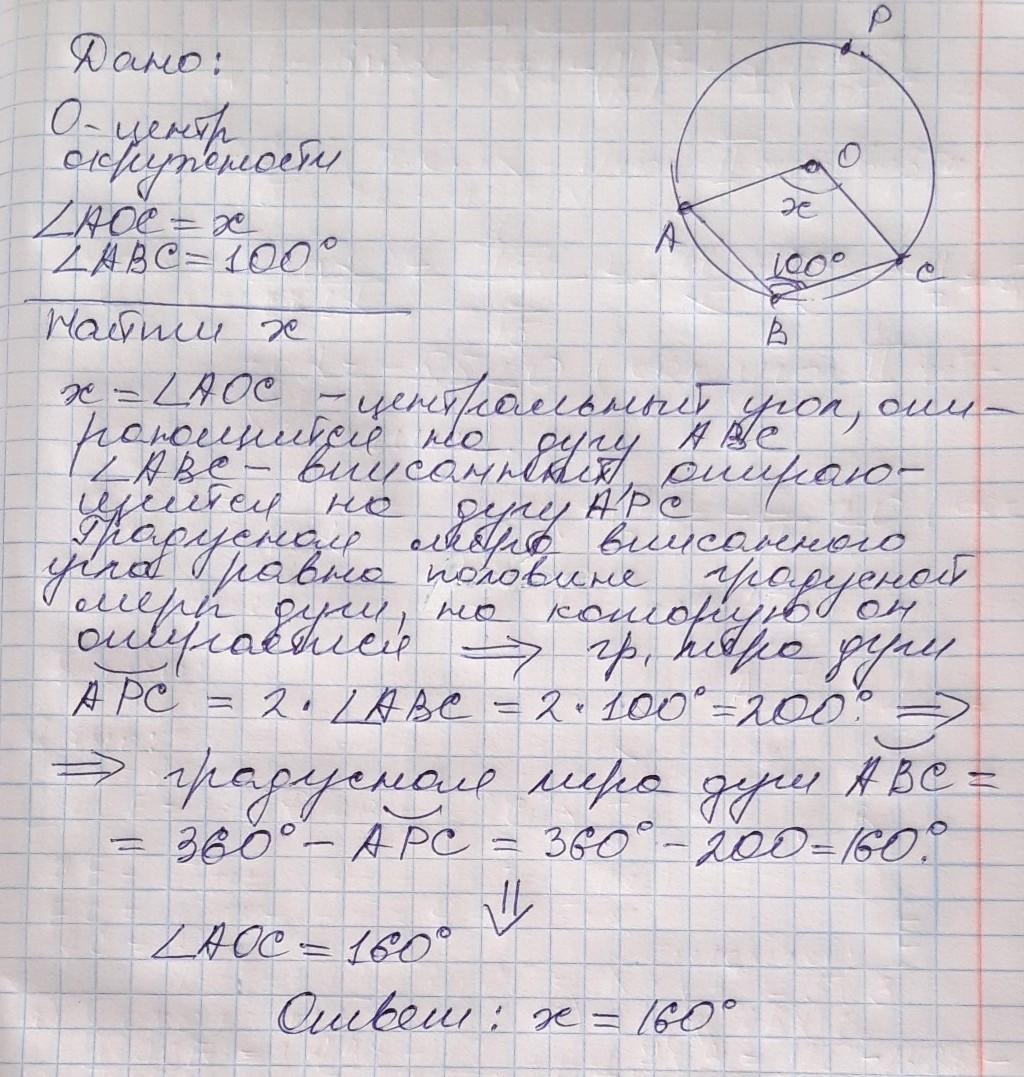 Дано:
P
О - центр
окружности
∠AOC = x
∠ABC = 100°
O
x
A
100°
C
B
Найти x
x = ∠AOC - центральный угол, опи-
рающийся на дугу ABC
∠ABC - вписанный, опираю-
щийся на дугу APC
Градусная мера вписанного
угла равна половине градусной
меры дуги, на которую он
опирается ⟹ гр. мера дуги
APC = 2 · ∠ABC = 2 · 100° = 200°. ⟹
⟹ градусная мера дуги ABC =
= 360° - APC = 360° - 200 = 160°.
⇓
∠AOC = 160°
Ответ: x = 160°